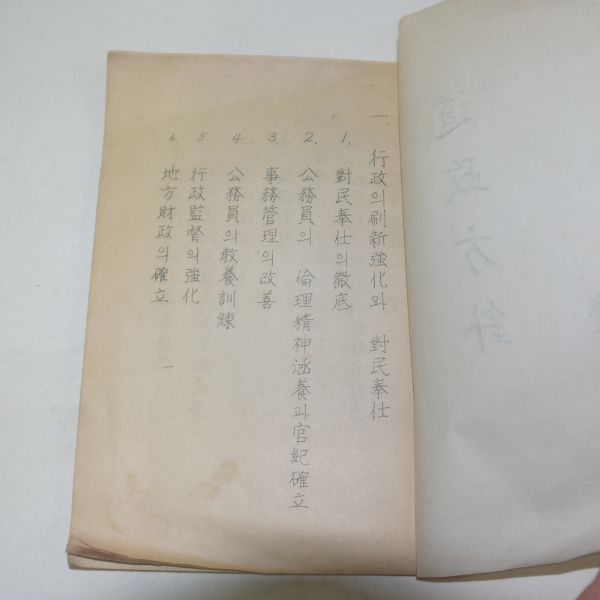 一. 行政의刷新強化와 對民奉仕
1. 對民奉仕의徹底
2. 公務員의 倫理精神涵養과官紀確立
3. 事務管理의改善
4. 公務員의敎養訓練
5. 行政監督의強化
6. 地方財政의確立
一
道政方針